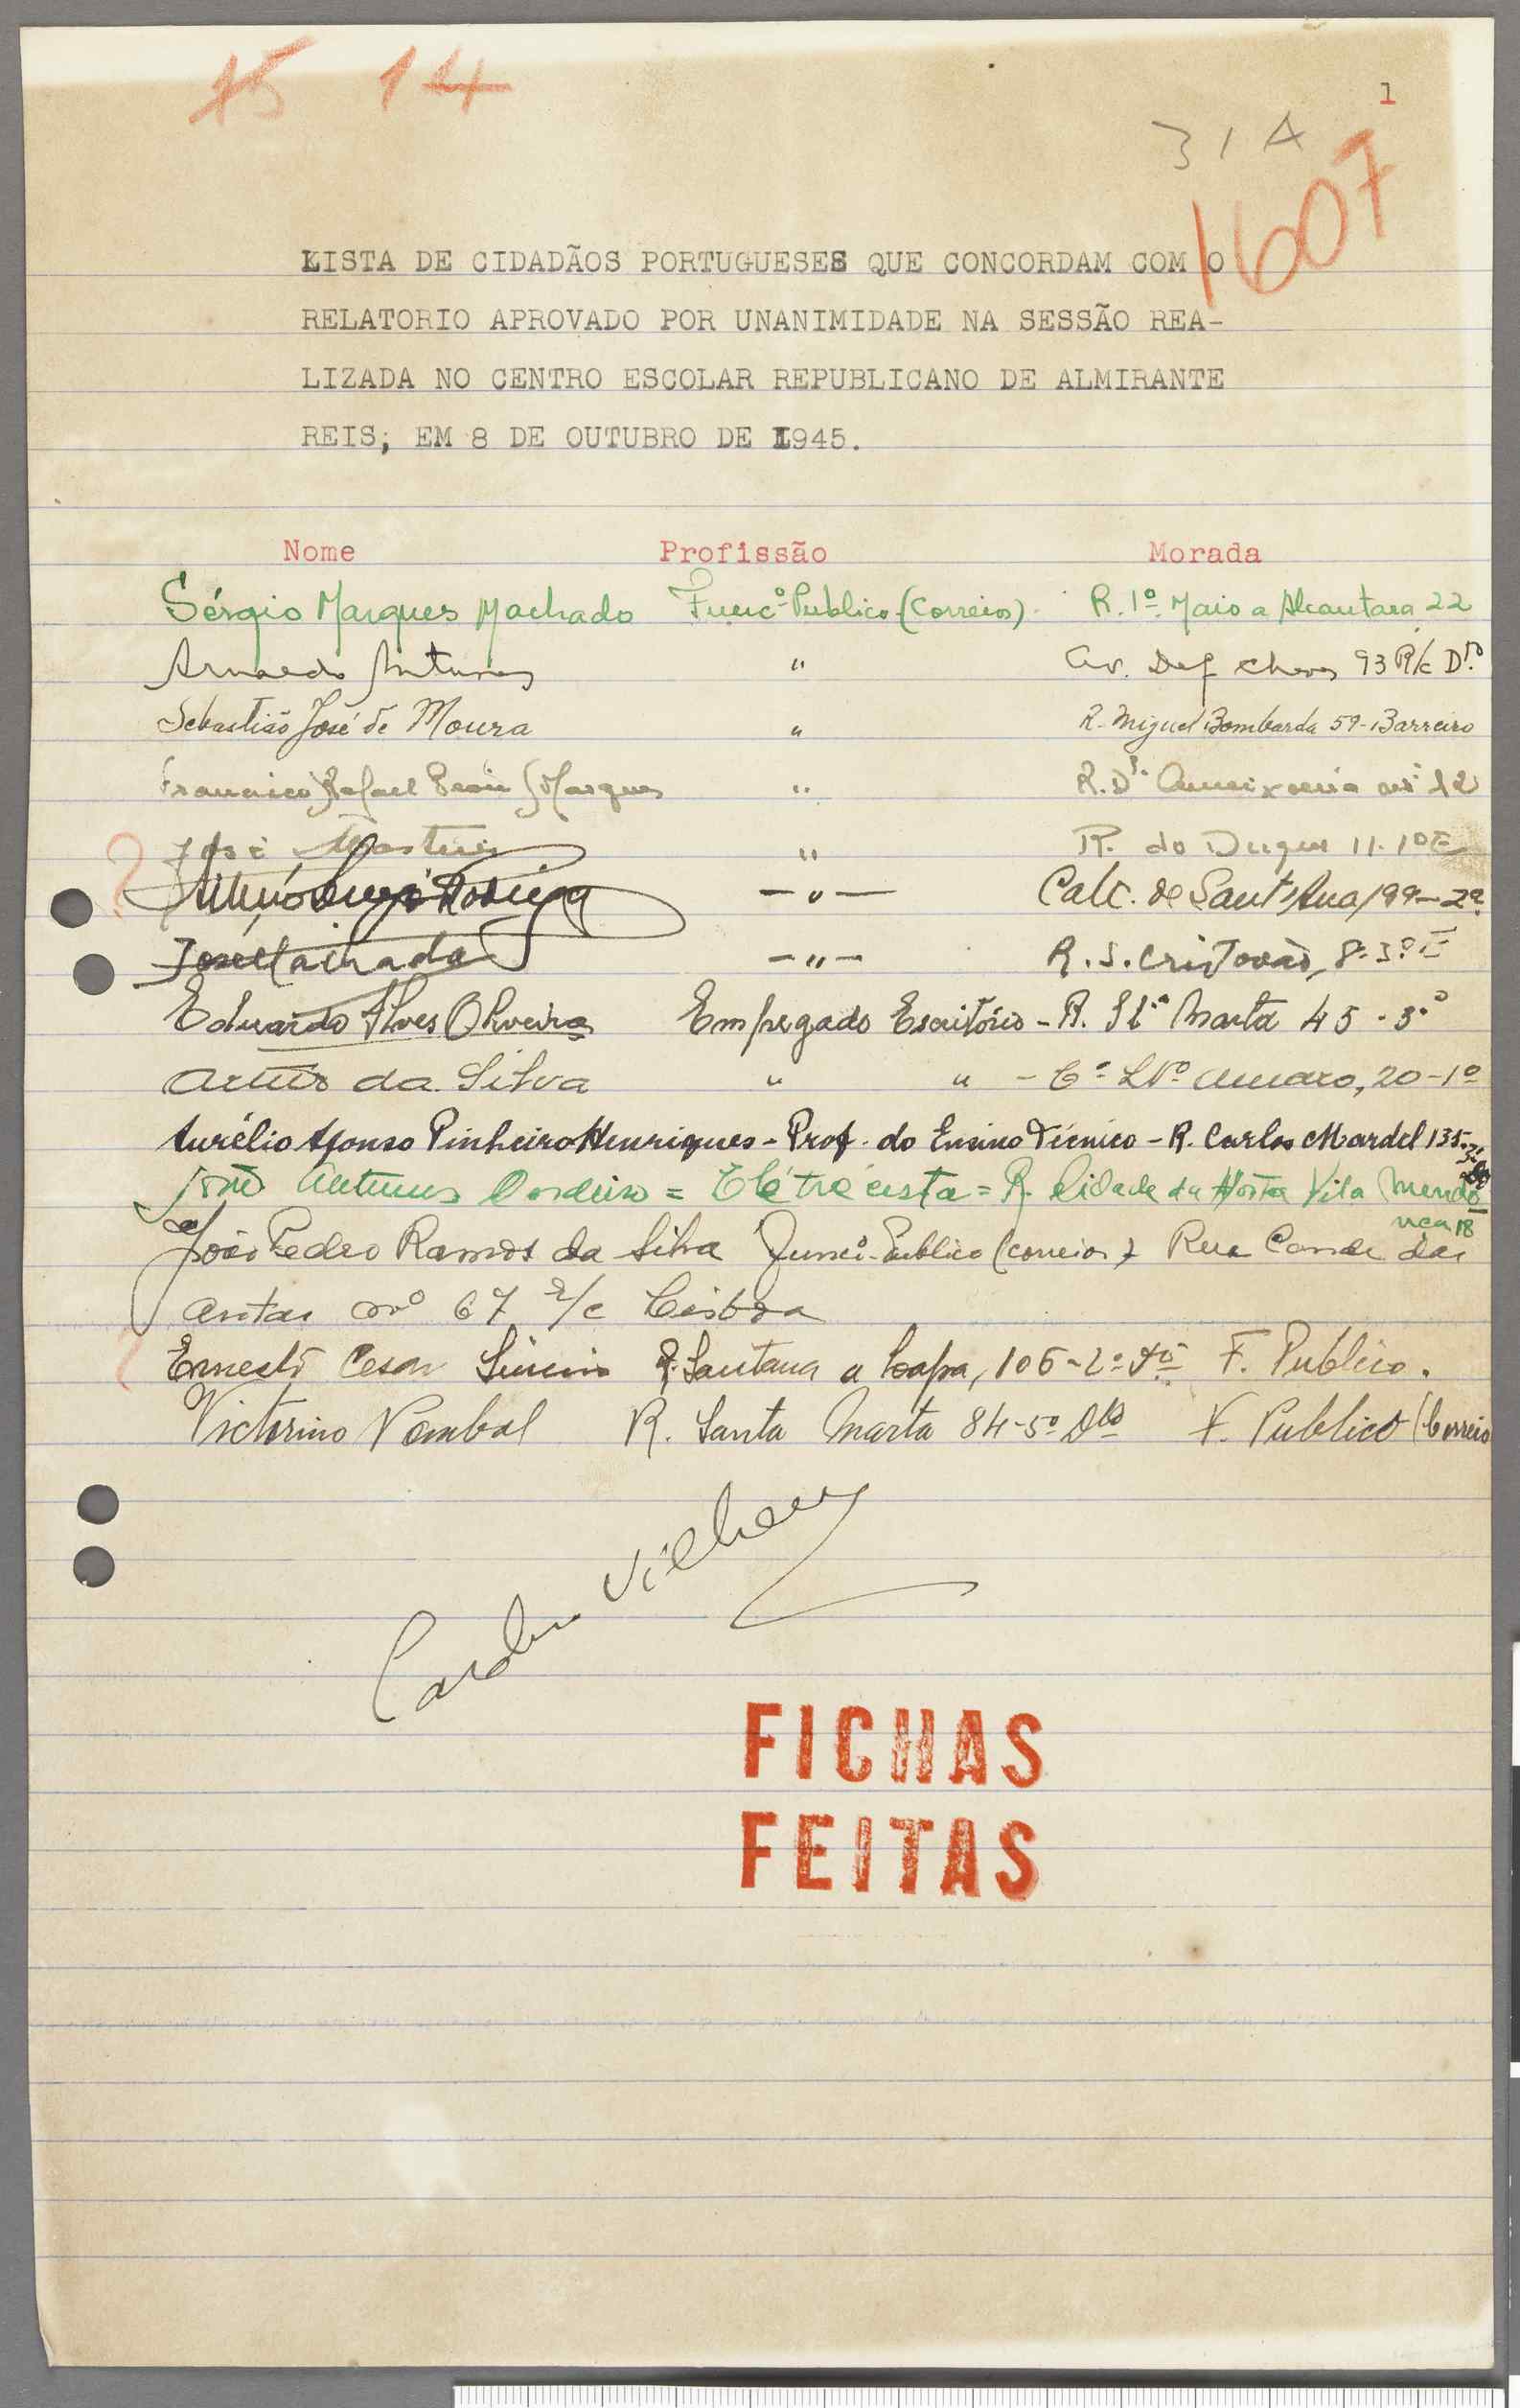 15 14
1
31A
1607
LISTA DE CIDADÃOS PORTUGUESES QUE CONCORDAM COM O
RELATORIO APROVADO POR UNANIMIDADE NA SESSÃO REA-
LIZADA NO CENTRO ESCOLAR REPUBLICANO DE ALMIRANTE
REIS; EM 8 DE OUTUBRO DE 1945.
Nome Profissão Morada
Sérgio Marques Machado Funcº Publico (Correios) R. 1º Maio a Alcantara 22
Arnaldo Antunes " Av. Def Chaves 93 R/c Dto
Sebastião José de Moura " R. Miguel Bombarda 59-Barreiro
Francisco Rafael Marques " R. Dª Ameixoeira nº 12
José Martins " R. do Duque 11. 1º E
? Rodrigo -"- Calc. de Sant'Ana 199-2º
José Machado -"- R. S. Cristovão, 8-3º E
Eduardo Alves Oliveira Empregado Escritório - R. Stª Marta 45-3º
Artur da Silva " " - Cª Stº Amaro, 20-1º
Aurélio Afonso Pinheiro Henriques - Prof. do Ensino Técnico - R. Carlos Mardel 135-3º
João Antunes Cordeiro = Elétrécista = R. Cidade da Horta Vila Mendo
nça 18
João Pedro Ramos da Silva Funcº Publico (correios) Rua Conde das
Antas nº 67 r/c Lisboa
Ernesto Cesar R. Santana a Lapa, 106-2º dto F. Publico.
Victorino Pombal R. Santa Marta 84-5º Dto F. Publico (Correio
Vilhena
FICHAS
FEITAS